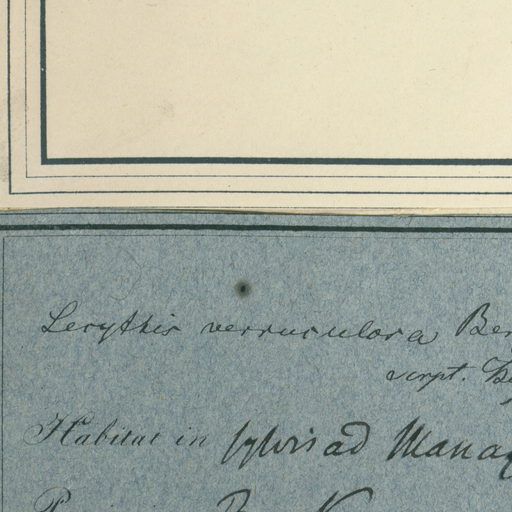 Lecythis verruculosa Ber
script.
Habitat in sylvis ad Mana